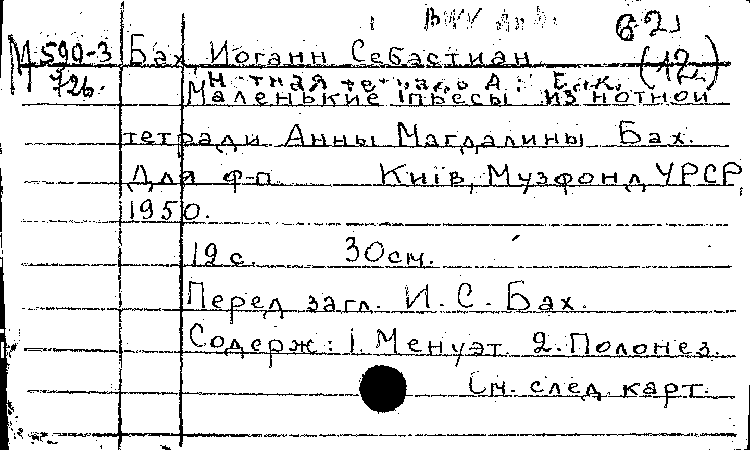 BWV Anh. 62
М 590-3 Бах, Иоганн Себастиан (12)
726. Нотная тетрадь А.
Маленькие пьесы из нотной
тетради Анны Магдалины Бах.
Для ф-п. Київ, Музфонд УРСР,
1950.
19 с. 30 см.
Перед загл. И. С. Бах.
Содерж: 1. Менуэт. 2. Полонез.
См. след. карт.